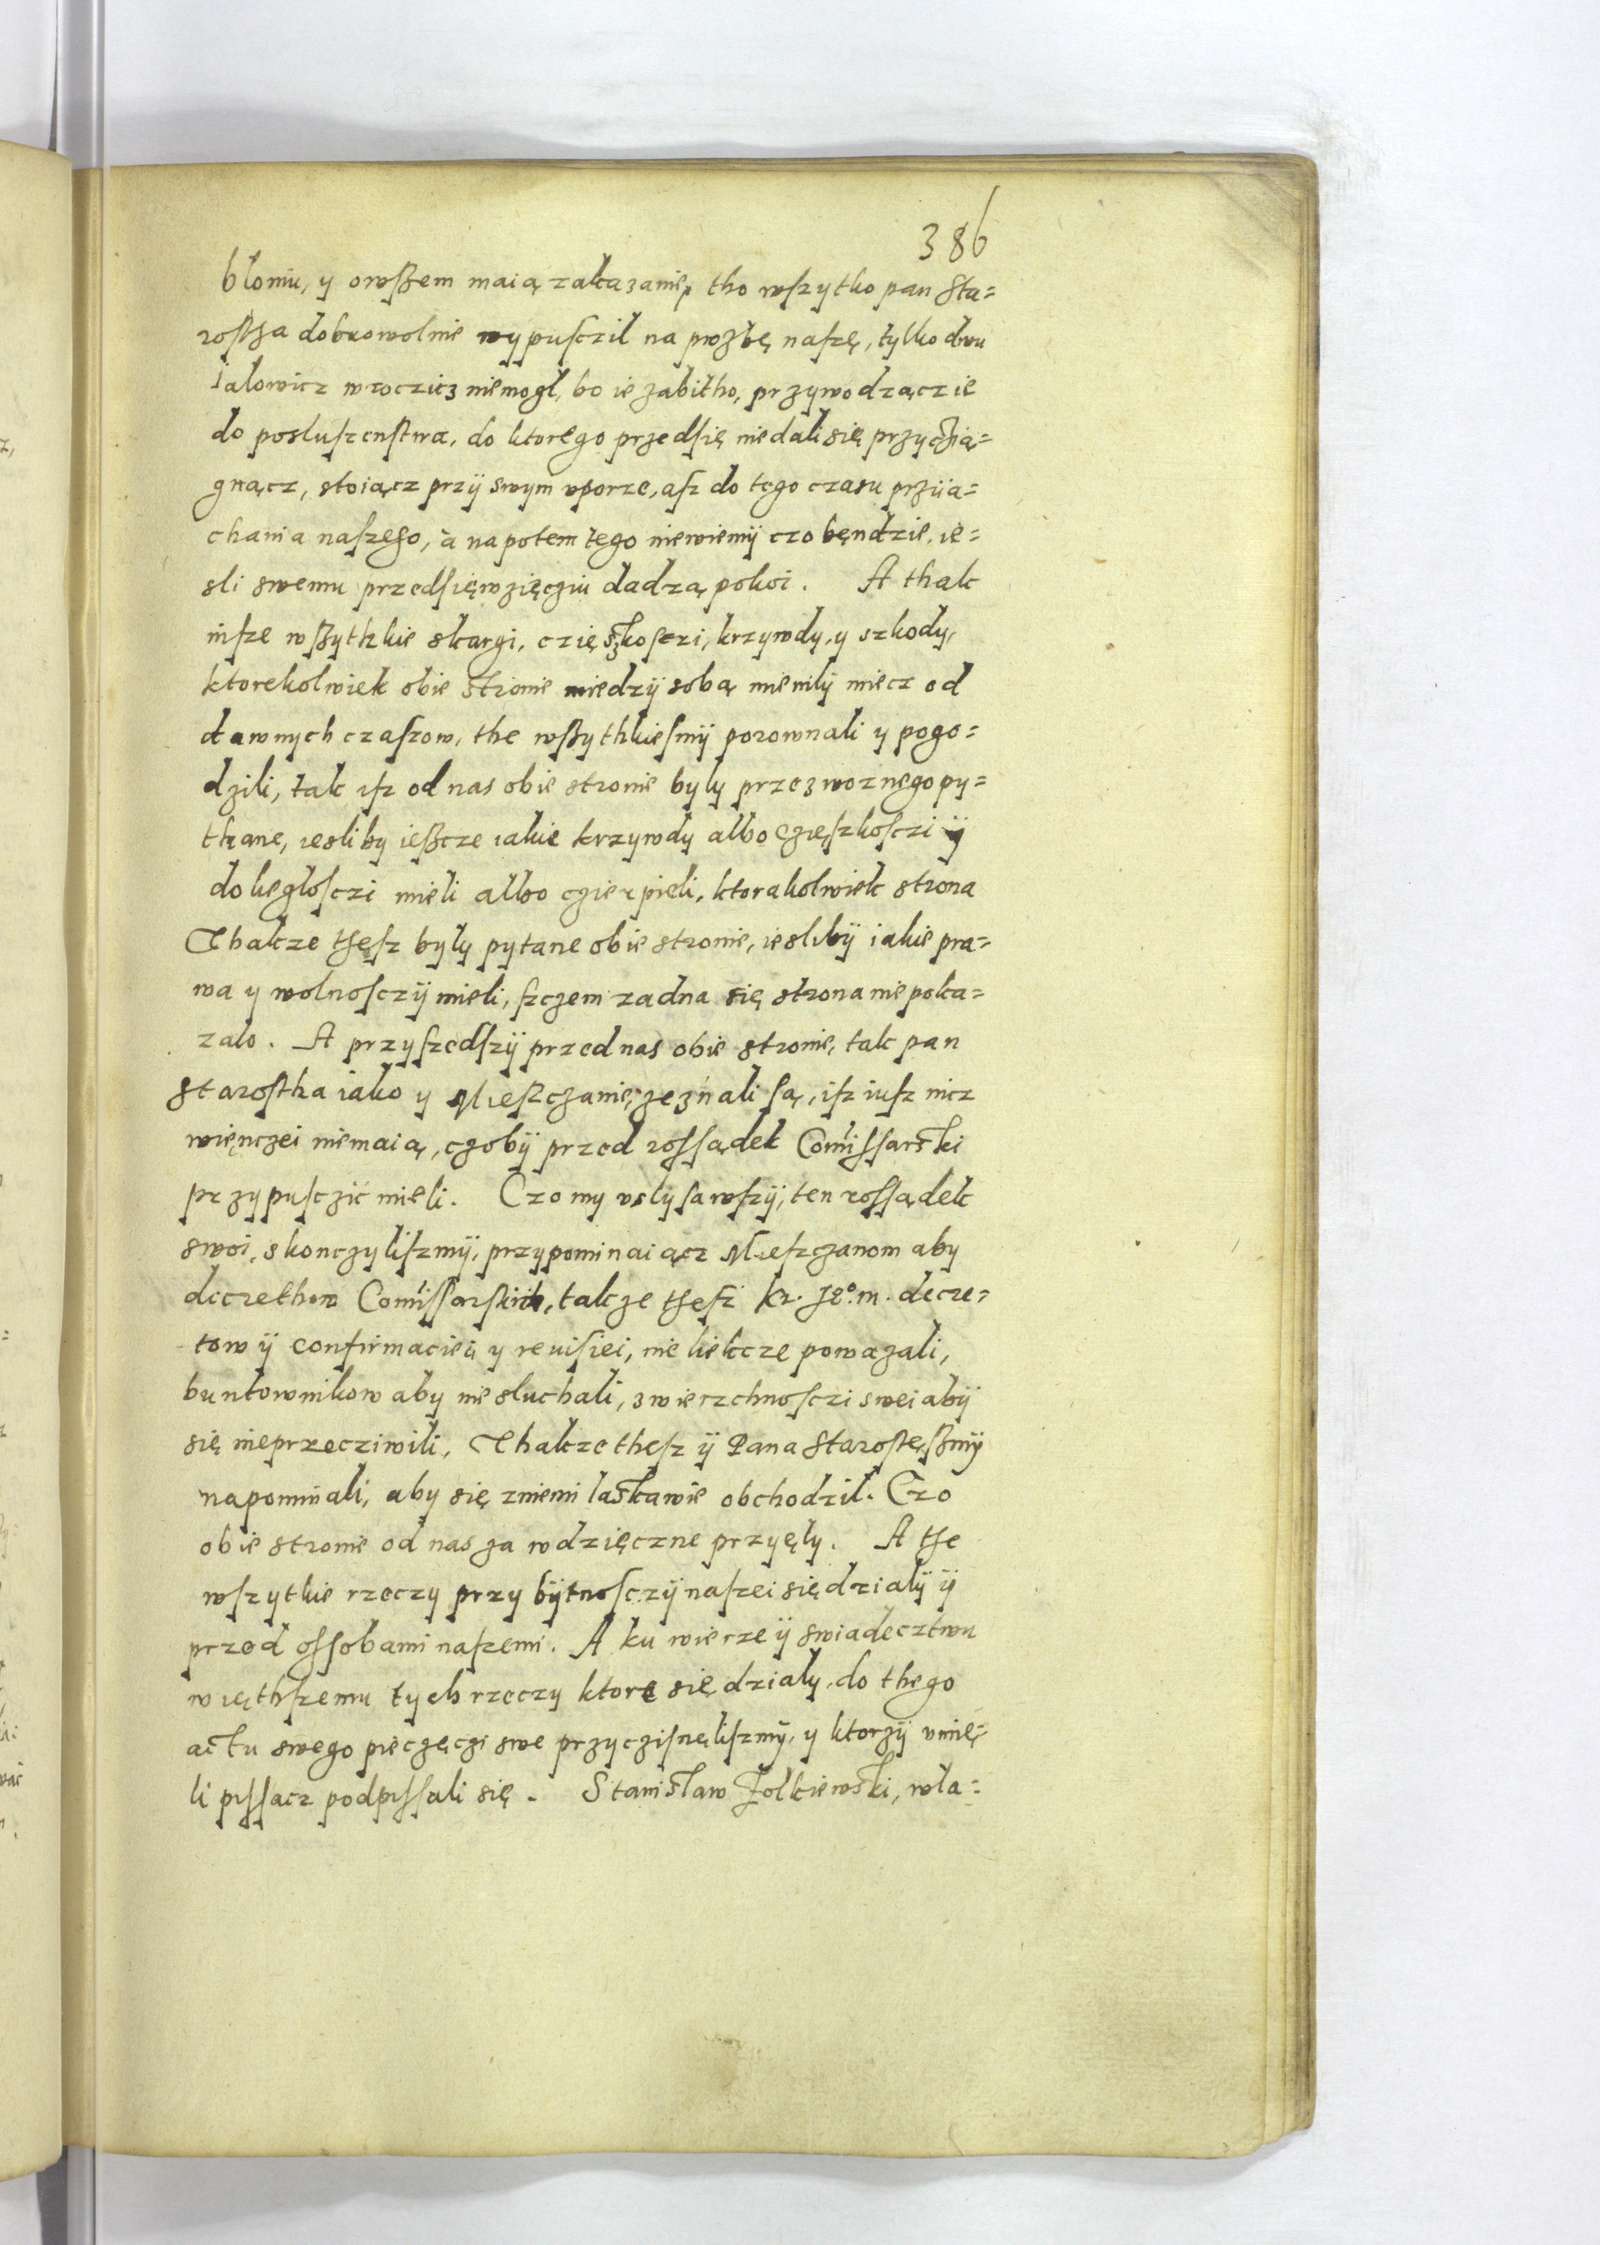 386
bloniu, y owßem maią zakazanie, tho wſzytko pan Sta=
roſtha dobrowolnie wypuſczil na prozbę naſzę, tylko dwu
ialowicz wroczicz niemogl, bo ie zabitho, przywodzącz ie
do posluſzenſtwa, do ktorego przedſię niedali się przyczią=
gnącz, stoiącz przÿ swym vporze, aſz do tego czasu przÿia=
chania naſzego, a napotem tego niewiemÿ czo bęndzie, ie=
sli swemu przedſięwzięcziu dadzą pokoi. A thak
inſze wßythkie skargi, czięſzkoſczi, krzywdy, y szkody,
ktorekolwiek obie stronie miedzÿ sobą mienilÿ miecz od
dawnych czaſzow, the wßythkieſmÿ porownali y pogo=
dzili, tak iſz od nas obie stronie byly przez woznego py=
thane, iesliby ießcze iakie krzywdy albo czięſzkoſczi ÿ
doległoſczi mieli albo czierpieli, ktorakolwiek strona
Thakze theſz byly pytane obie stronie, ieslibÿ iakie pra=
wa y wolnoſczÿ mieli, ſzczem zadna się strona nie poka=
zalo. A przyſzedſzÿ przed nas obie stronie, tak pan
Staroſtha iako y Mieſzczanie, zeznali ſą, iſz iuſz nicz
więnczei niemaią, czobÿ przed roſſądek Comiſſarski
przypuſczić mieli. Czo my vslyſawſzÿ, ten roſſądek
swoi, skonczyliſzmÿ, przypominaiącz Mieſzczanom aby
decrethow Comiſſarskich, takze theſz Kr. Je⁰. m. decre=
tow ÿ confirmacieÿ y reuiſiei, nie liekcze powazali,
buntownikow aby nie sluchali, zwierzchnoſczi swei abÿ
się nieprzecziwili, Thakze theſz ÿ Pana Staroſtęßmÿ
napominali, aby się zniemi laskawie obchodzil. Czo
obie stronie od nas za wdzięczne przyęly. A the
wſzytkie rzeczy przy bÿtnoſczÿ naſzei się dzialÿ ÿ
przed oſſobami naſzemi. A ku wierze ÿ swiadecztwu
więthſzemu tych rzeczy ktore się dzialy, do thego
actu swego pieczęczi swe przyczisnęliſzmÿ, y ktorzÿ vmię=
li piſſacz podpiſſali się. Stanisław Żolkiewski, wla=